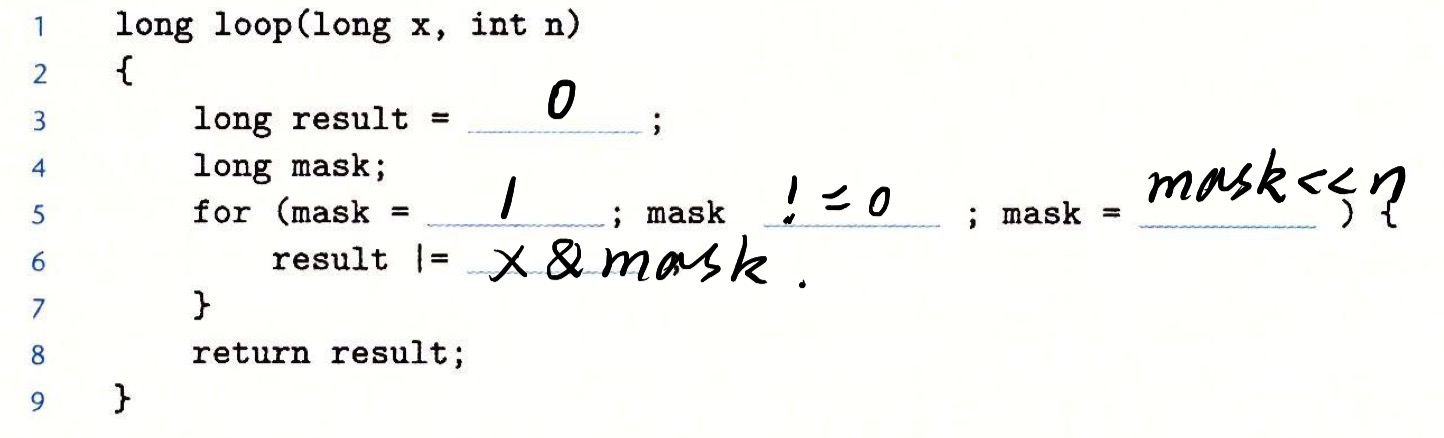 1 long loop(long x, int n)
2 {
3 long result = 0 ;
4 long mask;
5 for (mask = 1 ; mask != 0 ; mask = mask<<n ) {
6 result |= x & mask .
7 }
8 return result;
9 }